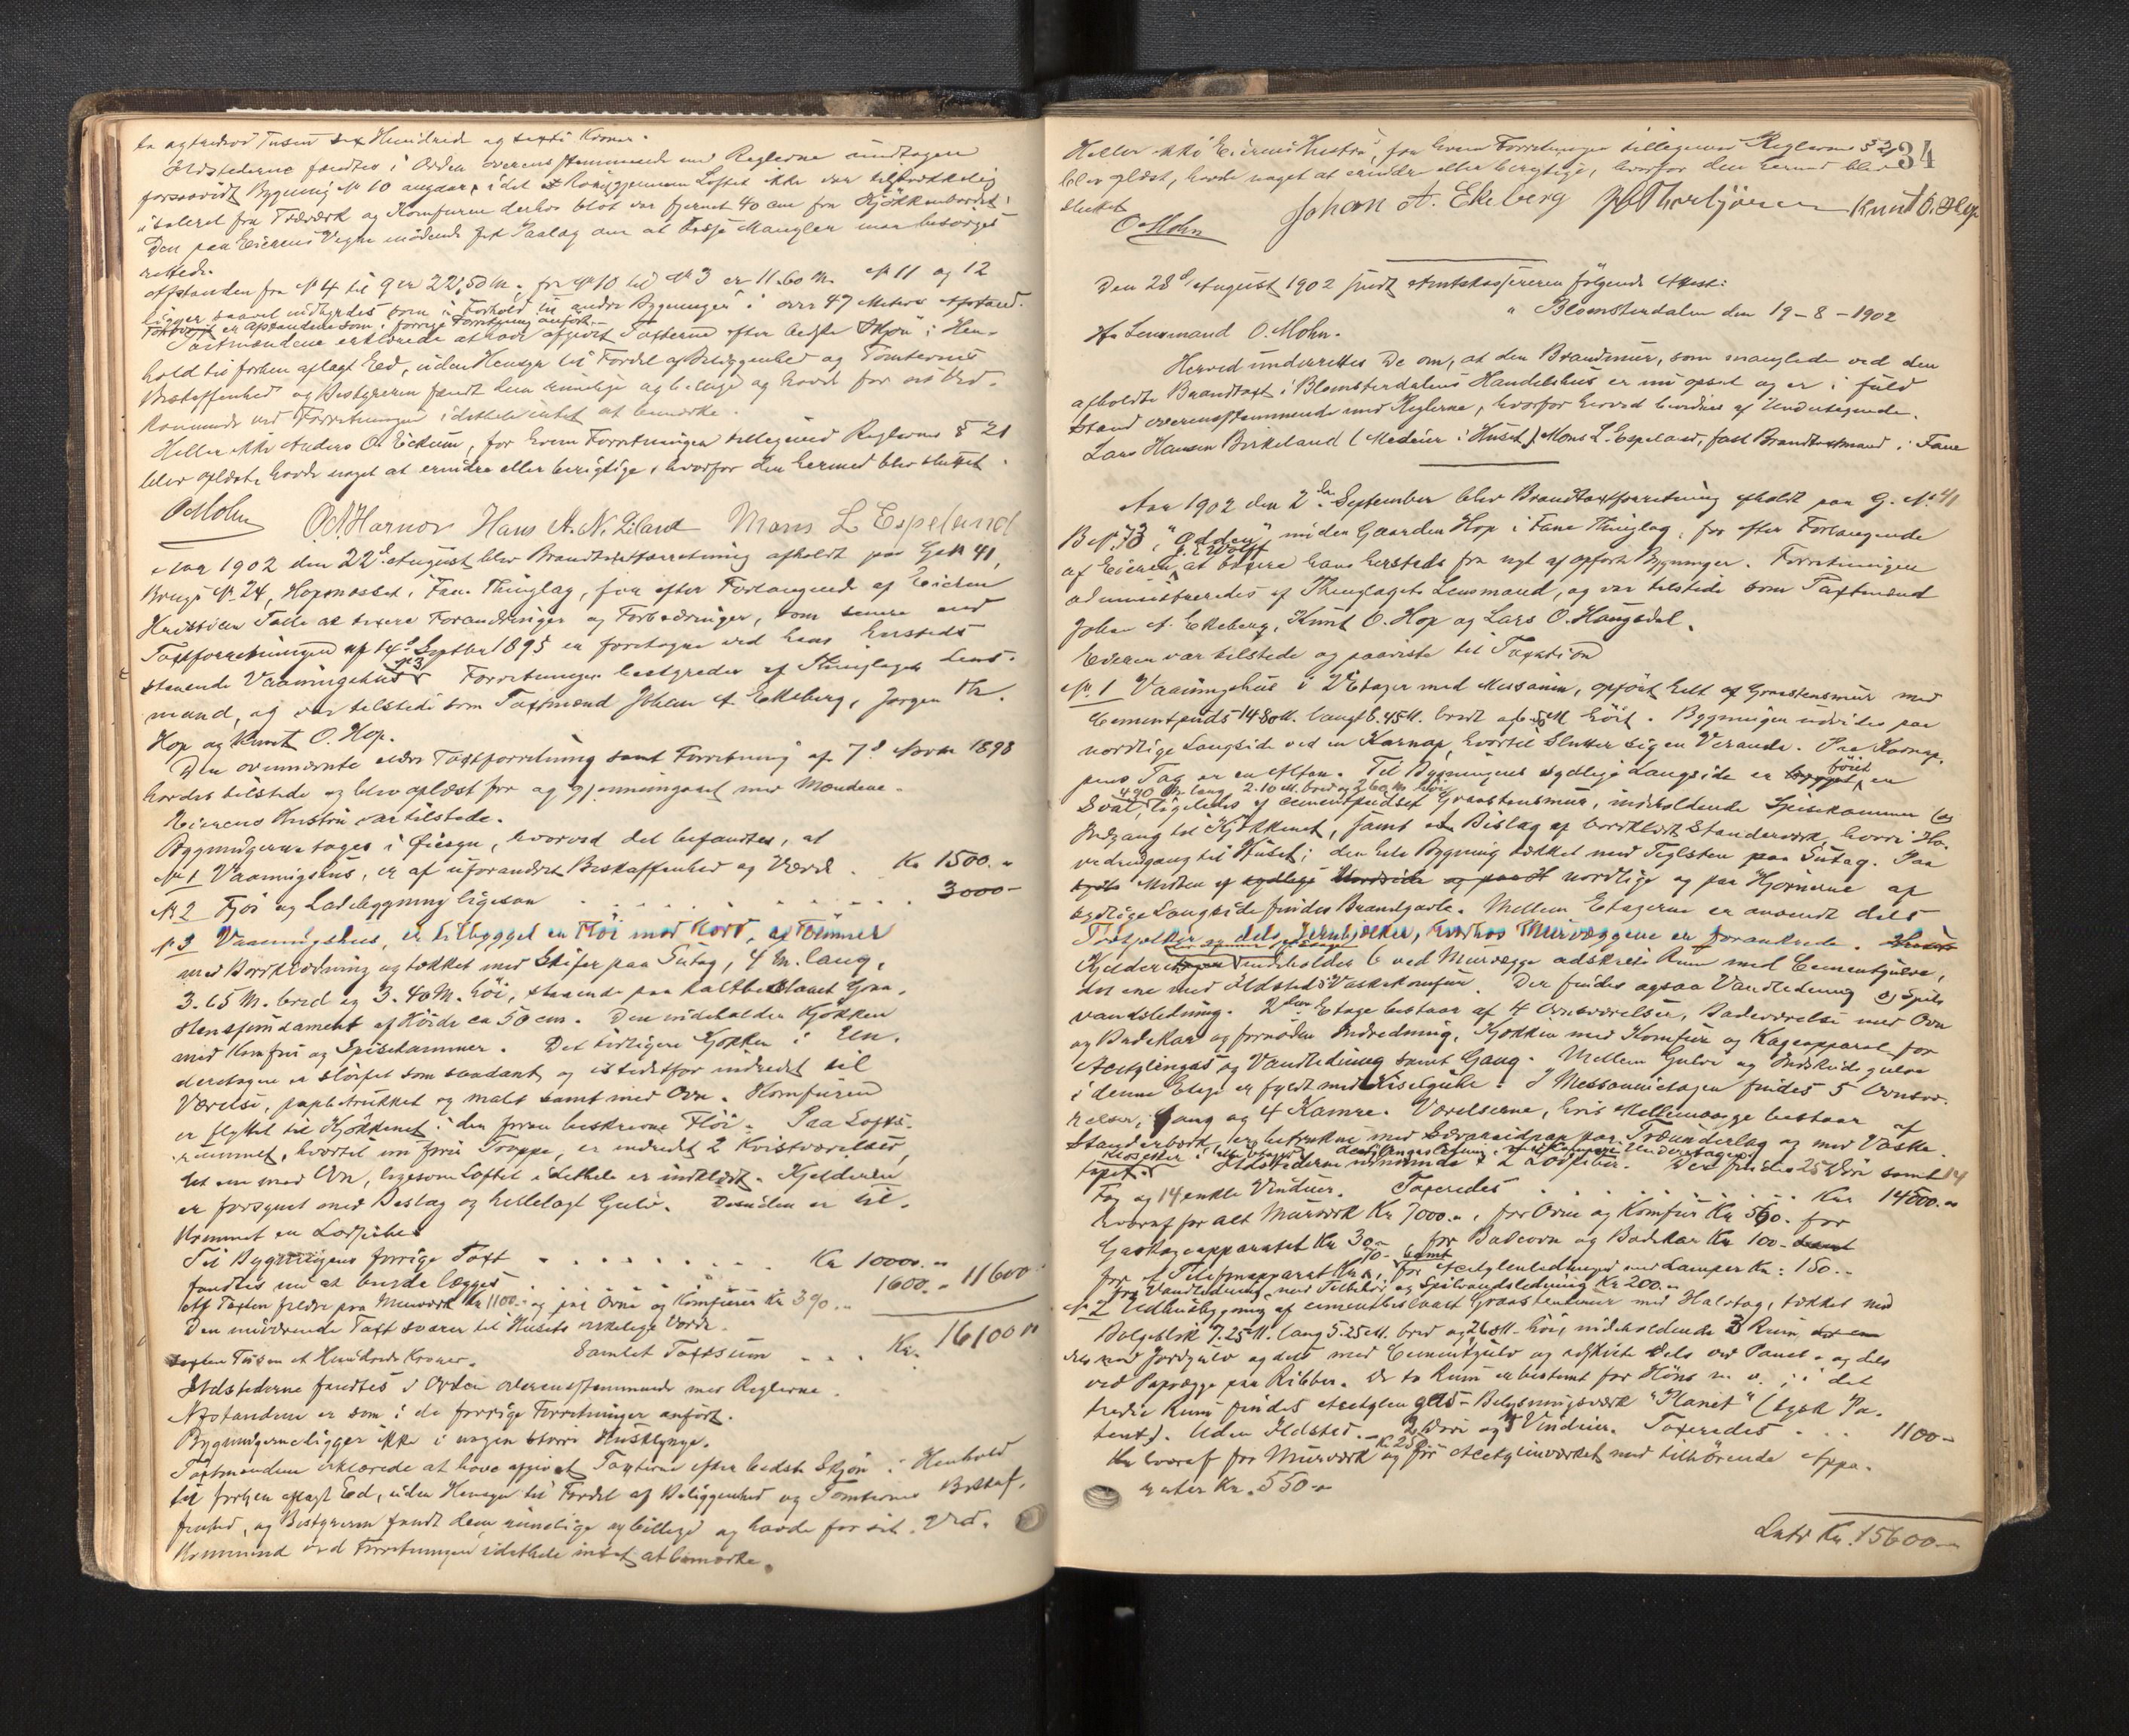 ta og tredive Tusen sex Hundrede og sexti Kroner.
Ildstederne fandtes i Orden overensstemmende med Reglerne undtagen
forsaavidt Bygning № 10 angaar, idet Röret gjennem Loftet ikke var tilstrækkelig
isoleret fra Træværk og Komfuren derhos blot var fjernet 40 cm fra Kjökkenbordet.
Den paa Eierens Vegne mödende fik Paalæg om at disse Mangler maa besörges
rettede.
Afstanden fra № 4 til 9 er 22,50 M., fra № 10 til № 3 er 11.60 M. № 11 og 12
ligger saavel indbyrdes som i Forhold til andre Bygninger i over 47 Meters Afstand.
Forövrigt er Afstandene som i forrige Forretning anfört.
Taxtmændene erklærede at have afgivet Taxterne efter bedste Skjön i Hen-
hold til forhen aflagt Eed, uden Hensyn til Fordel af Beliggenhed og Tomternes
Beskaffenhed og Bestyreren fandt dem rimelige og billige og havde for sit Ved-
kommende ved Forretningen idethele intet at bemærke.
Heller ikke Anders O. Eikum, for hvem Forretningen tillegemed Reglernes § 21
blev oplæst, havde noget at erindre eller berigtige, hvorfor den hermed blev sluttet.
O Mohn O. A. Harnor Hans A. N. Liland Mons L Espeland
Aar 1902 den 22de August blev Brandtaxtforretning afholdt paa G. № 41,
Brugs № 24, Hopsnesset i Fane Thinglag, for efter Forlangende af Eieren
Kristian Talle at taxere Forandringer og Forbedringer, som senere end
Taxtforretningen af 14de Septbr 1895 er foretagne ved hans hersteds
staaende Vaaningshus № 3. Forretningen bestyredes af Thinglagets Lens-
mand, og var tilstede som Taxtmænd Johan A. Ekeberg, Jørgen Th.
Hop og Knut O. Hop.
Den ovennævnte ældre Taxtforretning samt Forretning af 7de Novbr 1898
havdes tilstede og blev oplæst for og gjennemgaaet med Mændene.
Eierens Hustru var tilstede.
Bygningerne toges i Øiesyn, hvorved det befandtes, at
№ 1 Vaaningshus, er af uforandret Beskaffenhed og Værd . Kr 1500.-
№ 2 Fjös og Ladebygning ligesaa . . . . . . . . . 3000-
№ 3 Vaaningshus, er tilbygget en Flöi mod Nord, af Tömmer
med Bordklædning og tækket med Skifer paa Sutag, 4 M. lang,
3.65 M. bred og 3.40 M. höi, staaende paa kalkbeslaaet Graa-
stensfundament af Höide ca 50 cm. Den indeholder Kjökken
med Komfur og Spisekammer. Det tidligere Kjökken i Un-
deretagen er slöifet som saadant og istedetfor indredet til
Værelse, papbetrukket og malt samt med Ovn. Komfuren
er flyttet til Kjökkenet i den foran beskrevne Flöi. Paa Lofts-
rummet, hvortil en förer Trappe, er indredet 2 Kvistværelser,
det ene med Ovn, ligesom Loftet idethele er indklædt. Kjelderen
er forsynet med Beslag og hellelagt Gulv. Desuden er til-
kommet en Lodpibe.
Til Bygningens forrige Taxt . . . . . . . . Kr 10000.-
fandtes nu at burde lægges . . . . . . . 1600.- 11600.-
Af Taxten falder paa Murværk Kr 1100.- og paa Ovne og Komfurer Kr 390.-
Den nuværende Taxt svarer til Husets virkelige Værd.
Sexten Tusen et Hundrede Kroner. Samlet Taxtsum . . . Kr. 16100.-
Ildstederne fandtes i Orden overensstemmende med Reglerne.
Afstandene er som i de forrige Forretninger anfört.
Bygningerne ligger ikke i nogen större Husklynge.
Taxtmændene erklærede at have afgivet Taxterne efter bedste Skjön i Henhold
til forhen aflagt Eed, uden Hensyn til Fordel af Beliggenhed og Tomternes Beskaf-
fenhed, og Bestyreren fandt dem rimelige og billige og havde for sit Ved-
kommende ved Forretningen idethele intet at bemærke.
34
Heller ikke Eierens Hustru, for hvem Forretningen tillegemed Reglernes § 21
blev oplæst, havde noget at erindre eller berigtige, hvorfor den hermed blev
sluttet.
O Mohn Johan A. Ekeberg Knut O. Hop
Den 28de August 1902 fandt Amtskassereren fölgende Attest:
" Blomsterdalen den 19-8-1902
Hr Lensmand O. Mohn.
Herved underrettes De om, at den Brandmur, som manglede ved den
afholdte Brandtaxt i Blomsterdalens Handelshus er nu opsat og er i fuld
Stand overensstemmende med Reglerne, hvorfor herved bevidnes af Undertegnede.
Lars Hansen Birkeland (Medeier i Huset) Mons L. Espeland, fast Brandtaxtmand i Fane
Aar 1902 den 2den September blev Brandtaxtforretning afholdt paa G. № 41
B. № 73, "Odden", under Gaarden Hop i Fane Thinglag, for efter Forlangende
af Eieren J. E. Wolff at taxere hans hersteds fra nyt af opförte Bygninger. Forretningen
administreredes af Thinglagets Lensmand, og var tilstede som Taxtmænd
Johan A. Ekeberg, Knut O. Hop og Lars O. Haugsdal.
Eieren var tilstede og paaviste til Taxation
№ 1 Vaaningshus i 2 Etager med Messanin, opfört helt af Graastensmur med
Cementpuds 14.80 M. langt 8.45 M. bredt og höit. Bygningen udvides paa
nordlige Langside ved en Karnap, hvortil slutter sig en Veranda. Paa Karnap-
pens Tag er en Altan. Til Bygningens sydlige Langside er föiet en
4.90 M. lang 2.10 M. bred og 2.60 M. höi
Sval, ligeledes af cementpudset Graastensmur, indeholdende Spisekammer og
Indgang til Kjökkenet, samt Bislag af bordklædt Standerværk, hvori Ho-
vedindgang til Huset; den hele Bygning tækket med Teglsten paa Sutag. Paa
Midten af nordlige og paa Hjörnerne af
sydlige Langside findes Brandgavle. Mellem Etagerne er anvendt dels
Træbjelker og dels Jernbjelker, hvorhos Murvæggene er forankrede.
Kjelderetagen indeholder 6 ved Murvægge adskilte Rum med Cementgulve,
det ene med Ildsted Vaskekomfur. Der findes ogsaa Vandledning og Spild-
vandsledning. 2den Etage bestaar af 4 Ovnsværelser, Badeværelse med Ovn
og Badekar og fornöden Indredning, Kjökken med Komfur og Kogeapparat for
Acetylengas og Vandledning samt Gang. Mellem Gulve og Indskudsgulve
i denne Etage er fyldt med Kiselguhr. I Messaninetagen findes 5 Ovnsvæ-
relser, Gang og 4 Kamre. Værelserne, hvis Mellemvægge bestaar af
Standerbord, er betrukne med paa Træunderlag og med Vaske-
tapet. Ildstederne udmunde i 2 Lodpiber. Der findes 25 Döre samt 14
Fag og 14 enkle Vinduer. Taxeredes . . . . . . . Kr 14500.-
hvoraf for alt Murværk Kr 7000.-, for Ovne og Komfur Kr 560.- for
Gaskogeapparatet Kr 30.-, for Badeovn og Badekar Kr 100.-
for et Telefonapparat Kr 70.- samt for Acetylenledninger med Lamper Kr: 150.-
for Vandledning med Tilbehör og Spildvandsledning Kr 200.-
№ 2 Udhusbygning af cementbeslaaet Graastensmur med Halvtag, tækket med
Bölgeblik 7.25 M. lang 5.25 M. bred og 2.60 M. höi, indeholdende 3 Rum,
dels med Jordgulv og dels med Cementgulv og adskilte dels ved Panel- og dels
ved Papvægge paa Ribber. De to Rum er bestemt for Höns m. v.; i det
tredie Rum findes Acetylen gas-Belysningsværk "Planet" (tysk Pa-
tent). Uden Ildsted. 2 Döre og Vinduer. Taxeredes . . . 1100-
Kr hvoraf for Murværk Kr 250 og for Acetylenværket med tilhörende Appa-
rater Kr. 550.-
Lats Kr. 15600.-